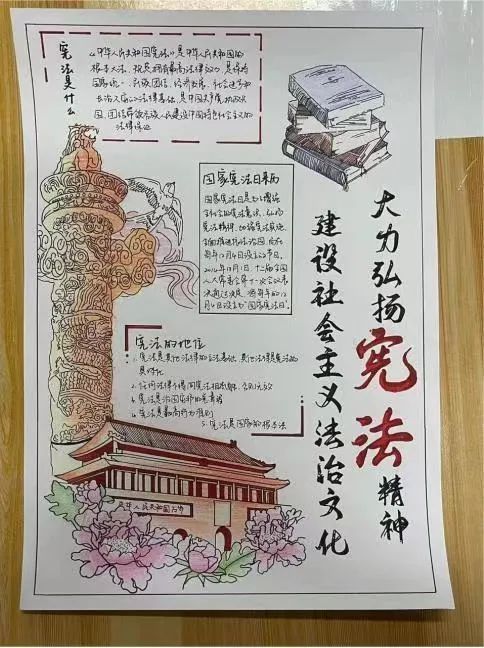 宪法是什么
《中华人民共和国宪法》是中华人民共和国的
根本大法，规定拥有最高法律效力，是保持
国家统一、民族团结、经济发展、社会进步和
长治久安的法律基础，是中国共产党执政兴
国，团结带领各族人民建设中国特色社会主义的
法律保证
国家宪法日来历
国家宪法日是为了增强
全社会的宪法意识，弘扬
宪法精神，加强宪法实施，
全面推进依法治国，而在
每年12月4日设立的节日。
2014年11月1日，十二届全国
人大常委会第十一次会议表
决通过决定，将每年的12
月4日设立为“国家宪法日”。
宪法的地位
1.宪法是其他法律的立法基础，其他法律是宪法的
具体化
2.任何法律不得同宪法相抵触，否则无效
3.宪法是治国安邦的总章程
4.宪法是最高行为准则
5.宪法是国家的根本法
大力弘扬宪法精神
建设社会主义法治文化
中华人民共和国万岁